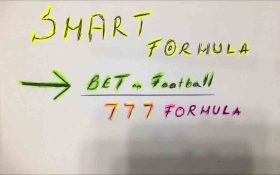 SMART
FORMULA
BET on Football
777 FORMULA